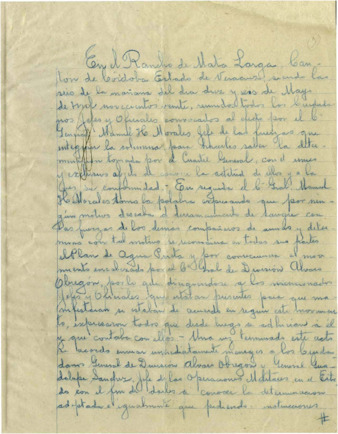 En el Rancho de Mata Larga, Can-
ton de Córdoba Estado de Veracruz, siendo las
seis de la mañana del dia diez y seis de Mayo
de mil novecientos veinte, reunidos todos los Ciudada
nos Jefes y Oficiales convocados al efecto por el C.
General Manuel H. Morales jefe de las fuerzas que
integran la columna para hacerles saber la deter-
minacion tomada por el Cuartel General, con el
y la actitud de ellos y a la
su conformidad - En seguida el C. Gral. Manuel
H. Morales tomo la palabra expresando que por nin-
gun motivo deseaba el derramamiento de sangre con
las fuerzas de los demas compañeros de armas y
con tal motivo en todas sus partes
el Plan de Agua Prieta y por consecuencia el movi
miento encabezado por el C. Gral. de Division Alvaro
Obregon, por lo que
Jefes y Oficiales que estaban presentes para que ma
nifestaran si estaban de acuerdo en seguir este movimien
to, expresaron todos que desde luego se adherian a él
y que contaba con ellos - Una vez terminado este acto
se acordo enviar inmediatamente mensajes a los Ciuda
danos General de Division Alvaro Obregon y General Gua
dalupe Sanchez, jefe de las Operaciones Militares en el Esta
do con el fin de darles a conocer la determinacion
adoptada e igualmente que pidiendo instrucciones
#